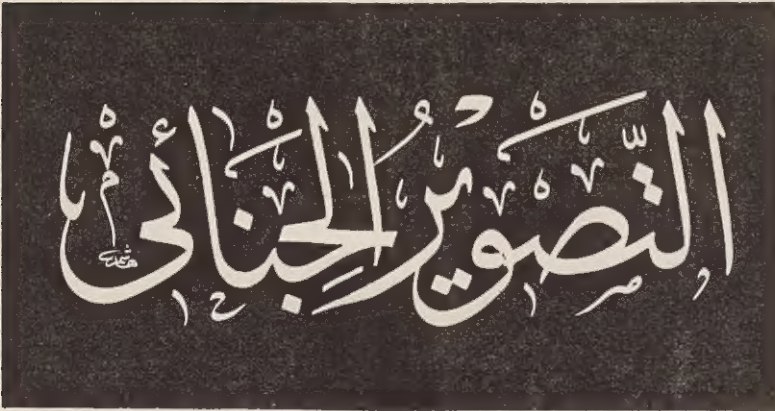 التَّصويرُ الجِنائي